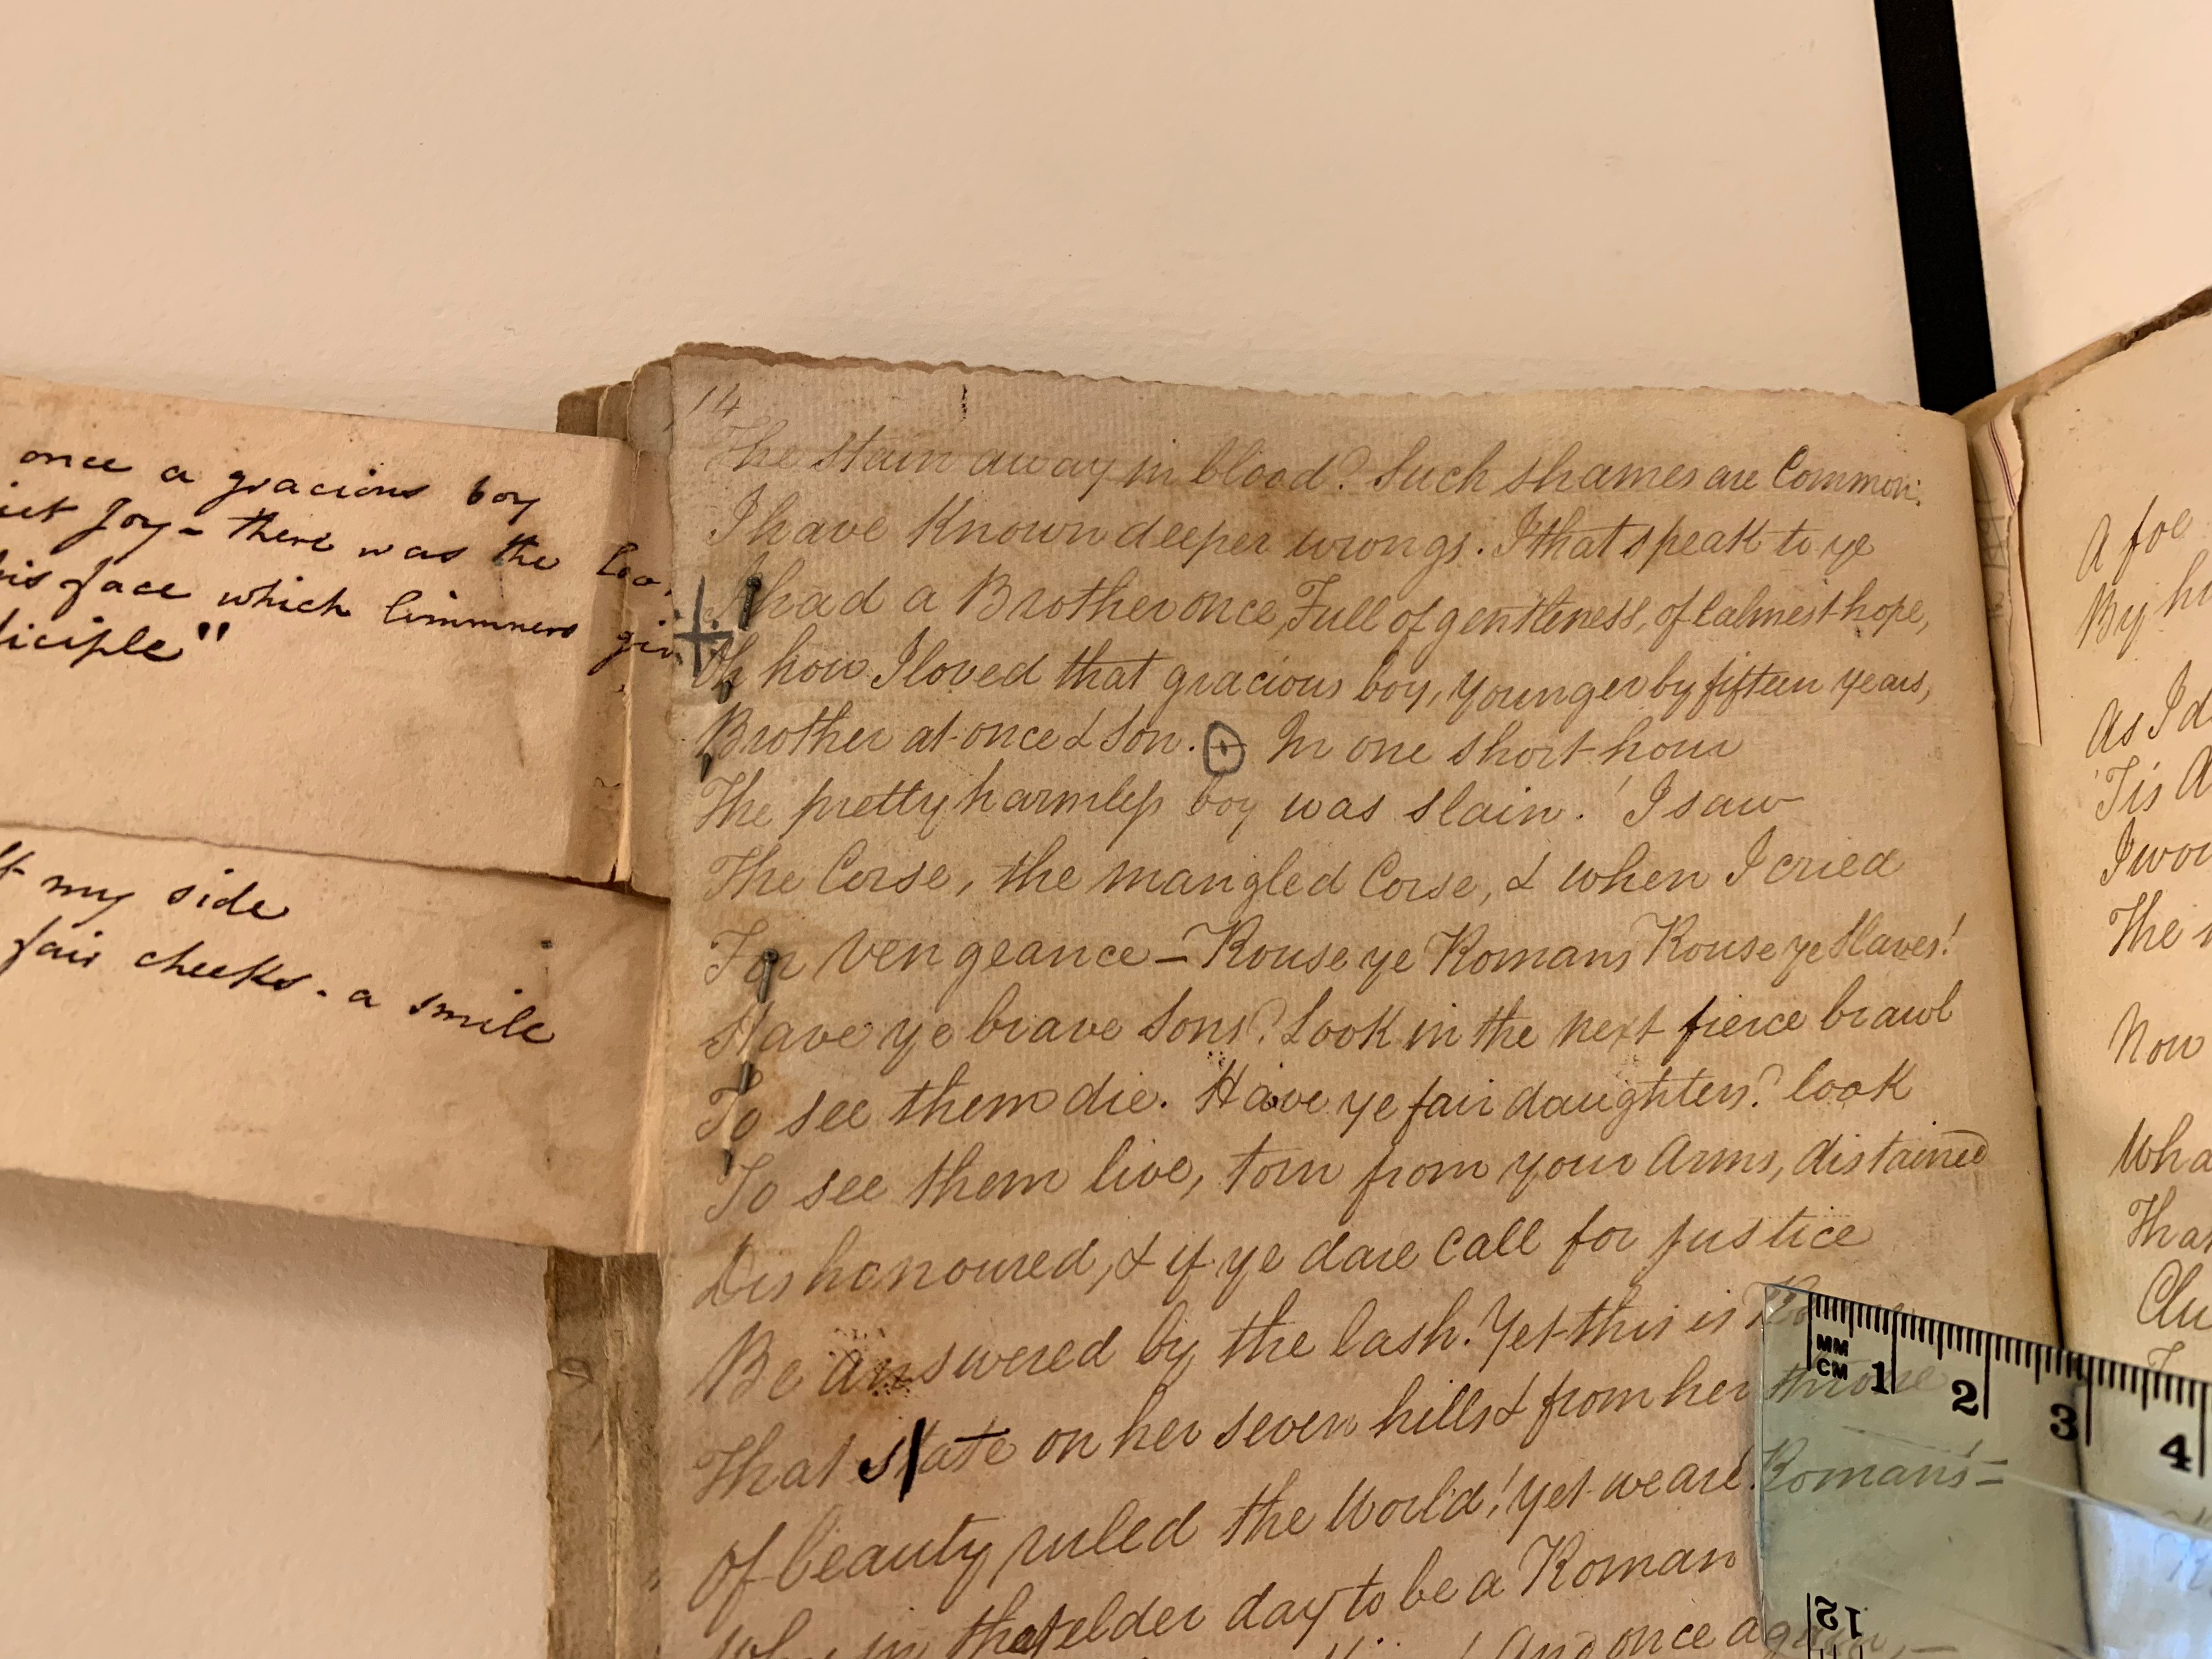 once a gracious boy
Joy - there was the
his face which limmners
diciple"
my side
fair cheeks - a smile
14
The stain away in blood? Such shames are Common:
I have Known deeper wrongs. I that speak to ye
I had a Brother once, Full of gentleness, of Calmest hope,
Oh how I loved that gracious boy, younger by fifteen years,
Brother at once & Son. In one short hour
The pretty harmless boy was slain! I saw
The Corse, the mangled Corse, & when I cried
For Vengeance - Rouse ye Romans Rouse ye Slaves!
Have ye brave Sons? Look in the next fierce brawl
To see them die. Have ye fair daughters? look
To see them live, torn from your Arms, distained
Dishonoured, & if ye dare Call for justice
Be answered by the lash. Yet this is
That sate on her seven hills & from her throne
Of beauty ruled the World! yet we are Romans -
in that elder day to be a Roman
And once again, -
A foe
By
As I
'Tis
I
The
Now
That
MM
CM 1 2 3 4
15